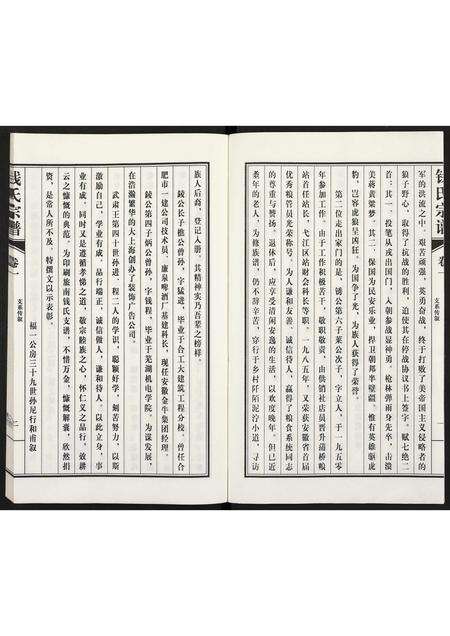 钱氏宗谱
卷一
支系传叙
军的洪流之中，艰苦顽强，英勇奋战，终于打败了美帝国主义侵略者的
狼子野心，取得了抗战的胜利，迫使其在停战协议书上签字，赋七绝二
首：其一，投笔从戎出国门，入朝参战显神勇，枪林弹雨身先卒，击溃
美蒋黄粱梦，其二，保国为民安乐业，捍卫朝邦半壁疆，惟有英雄驱虎
豹，岂容虎狼呈凶狂。为国争了光，为族人获得了荣誉。
第二位走出家门的是，锈公第六子莱公次子，字立人，于一九五零
年参加工作，由于工作积极苦干，敬职敬责，由供销社店员晋升蒲桥粮
站首任站长，弋江区站财会科长等职，一九八五年，又荣获安徽省首届
优秀粮管员光荣称号，为人谦和友善，诚信待人，赢得了粮食系统同志
的尊重与赞扬，退休后，应享受清闲安逸的生活，以欢度晚年。但已近
耋年的老人，为修族谱，仍不辞辛苦，穿行于乡村阡陌泥泞小道，寻访
族人后裔，登记入册，其精神实乃吾辈之榜样。
錂公长子樵公曾孙，字猛进，毕业于合工大建筑工程分校，曾任合
肥市一建公司技术员，廉泉啤酒厂基建科长，现任安徽金牛集团经理。
錂公第四子炳公曾孙，字钱程，毕业于芜湖机电学院，为谋发展，
在浩瀚繁华的大上海创办了装饰广告公司。
武肃王第四十世孙进、程二人的学识，聪颖好学，刻苦努力，以斯
激励自己，学业有成，品行端正，诚信做人，谦和待人，以此立身，事
业有成，同时又是遵循孝悌之道，敬宗睦族之心，怀仁义之品行，效耕
云之慷慨的典范。为印刷旅南钱氏支谱，不惜万金，慷慨解囊，欣然捐
资，是常人所不及，特撰文以示表彰。
福一公房三十九世孙尼行和甫叙
钱氏宗谱
卷一
支系传叙